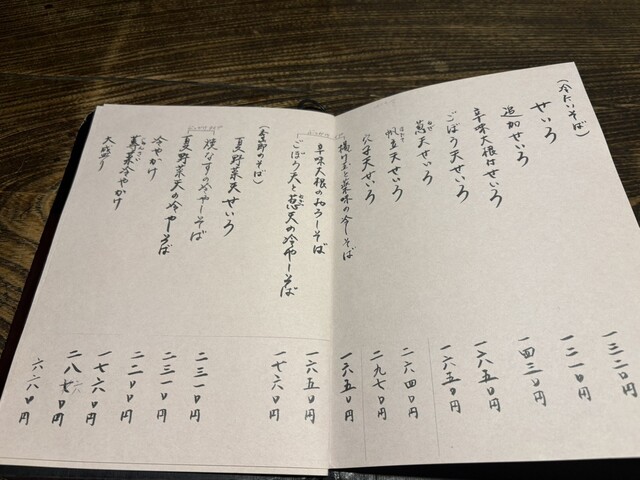 (冷たいそば)
せいろ
一三二〇円
追加せいろ
一二一〇円
辛味大根せいろ
一四三〇円
ごぼう天せいろ
葱天せいろ
一六五〇円
帆立天せいろ
二六四〇円
穴子天せいろ
二九七〇円
揚げ玉と薬味の冷しそば
一六五〇円
辛味大根のおろしそば
一六五〇円
ごぼう天と葱天の冷やしそば
一七六〇円
(季節のそば)
夏野菜天せいろ
二三一〇円
焼なすの冷やしそば
二三一〇円
夏野菜天の冷やしそば
冷やかけ
一七六〇円
冷やかけ
大盛り